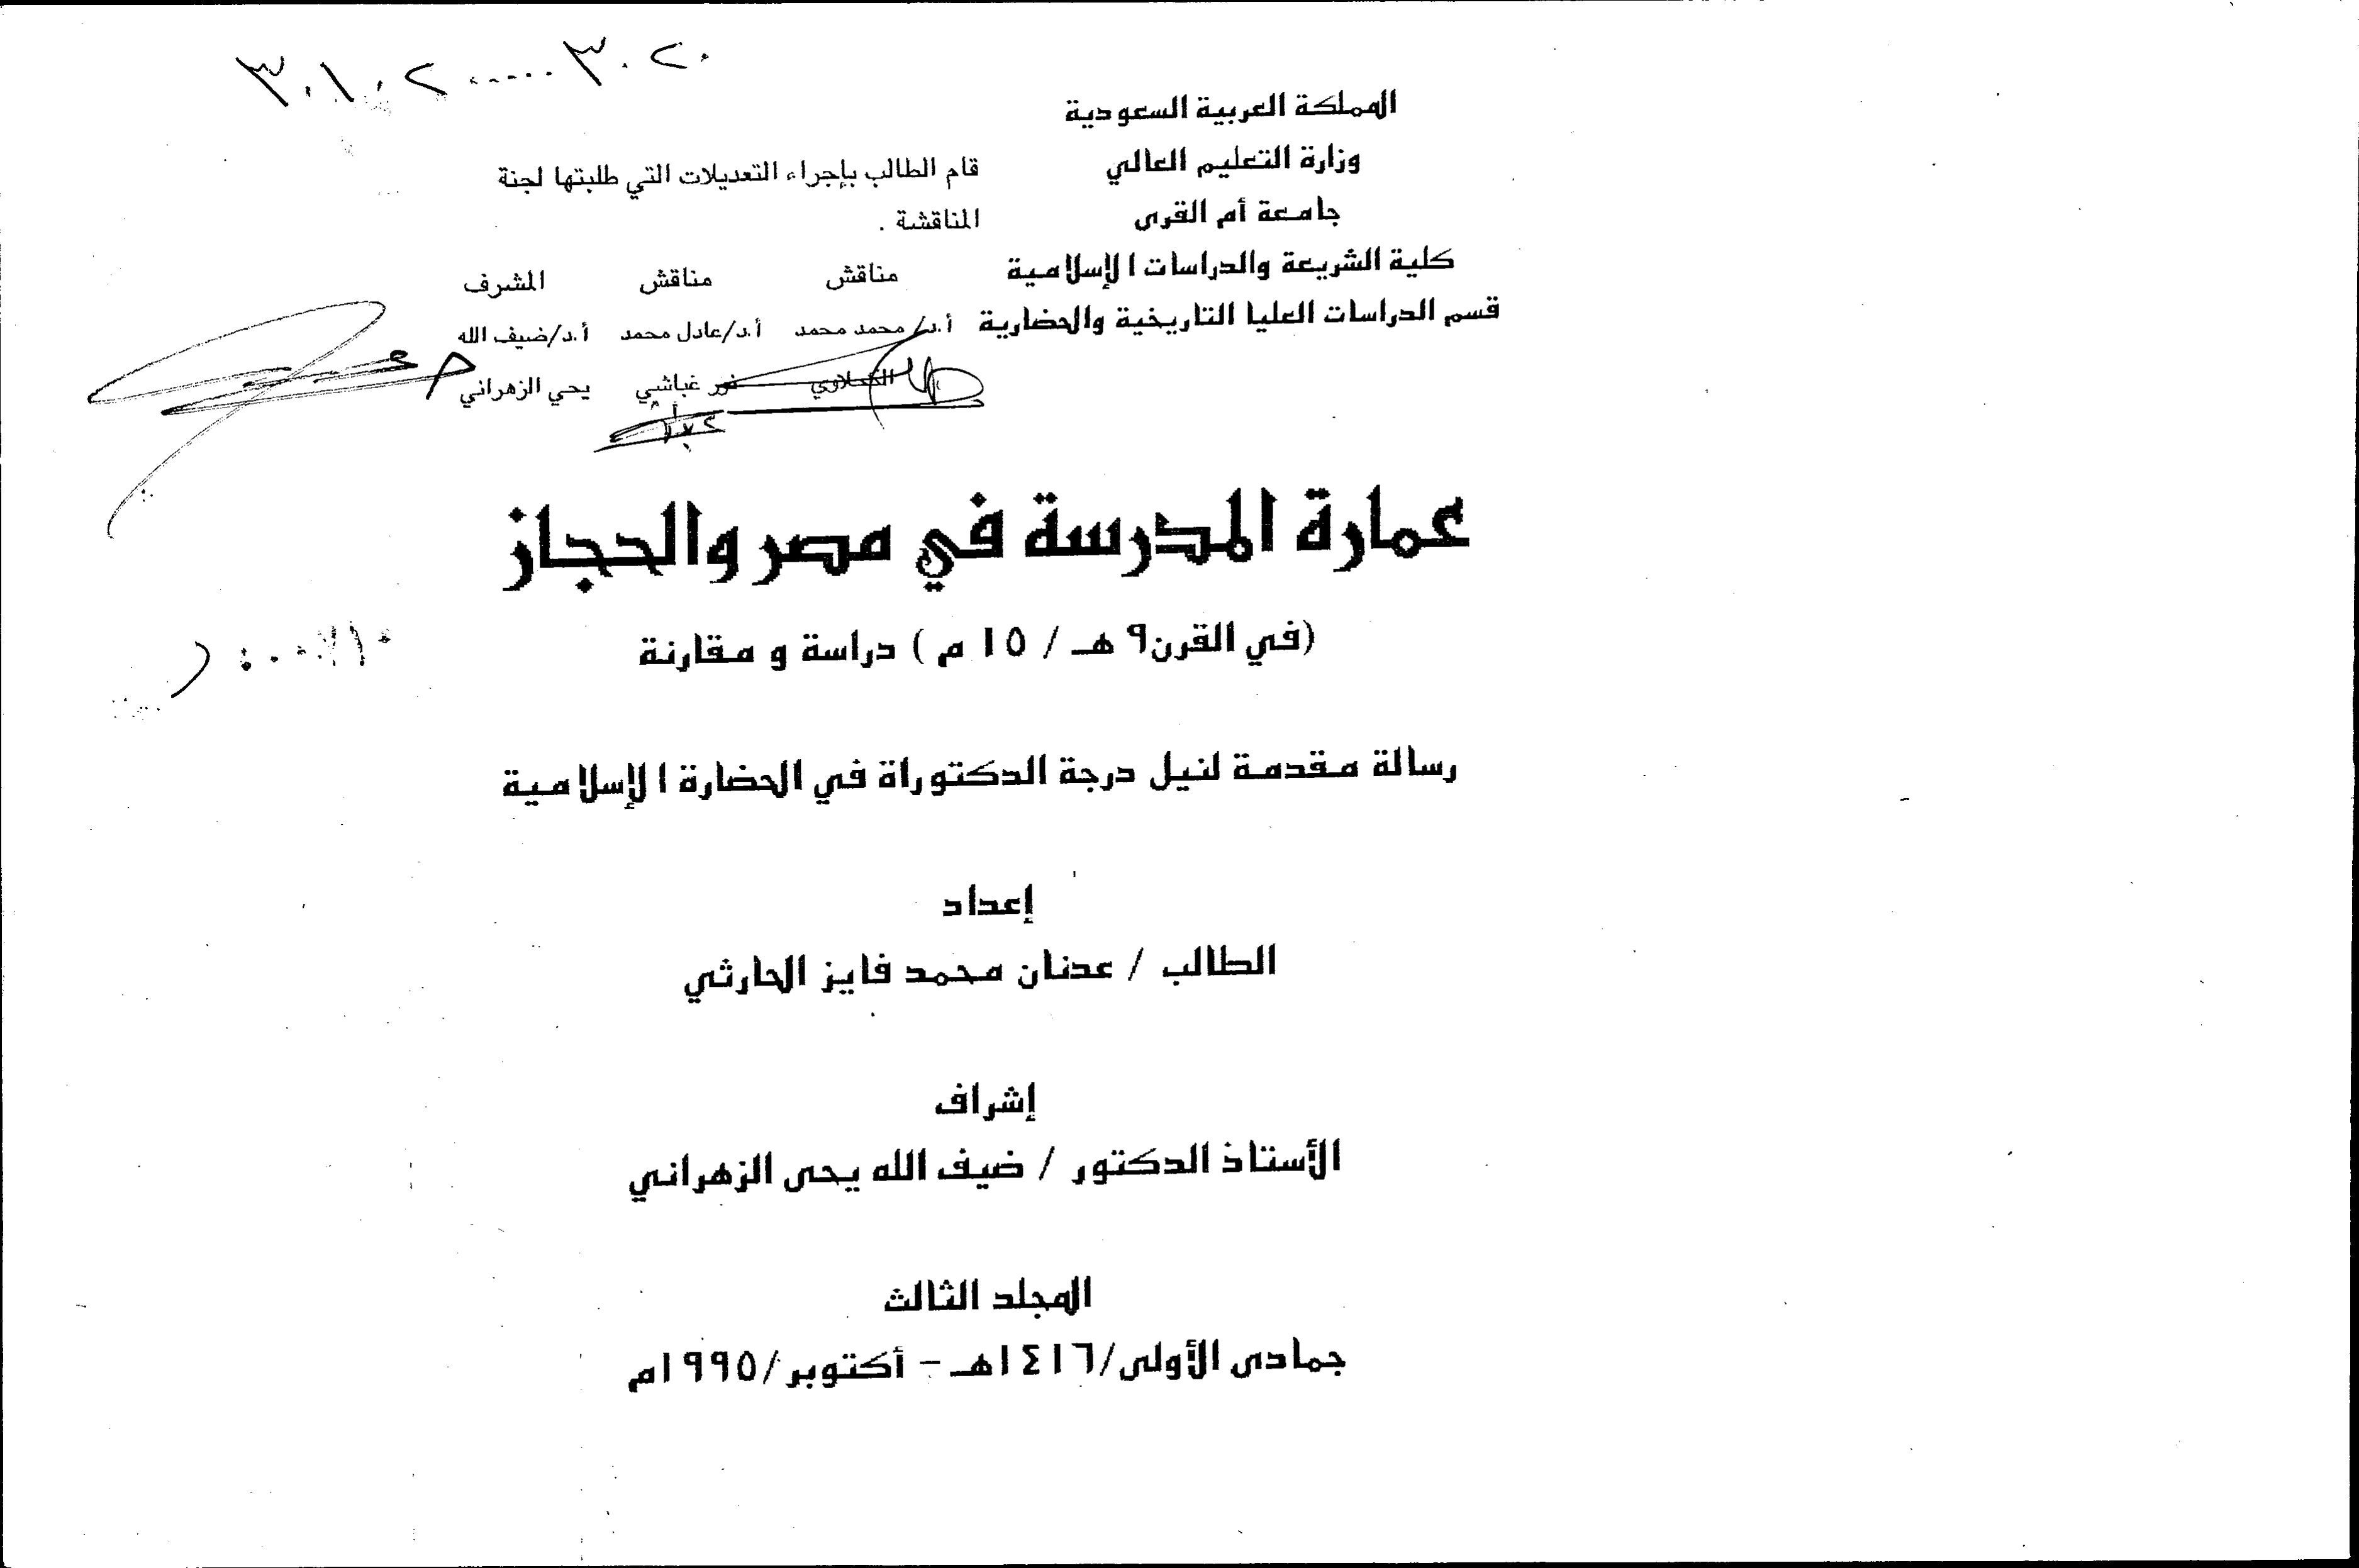 ٣٠١٠٢٠٠٠٠٠٣٠٢٠
المملكة العربية السعودية
وزارة التعليم العالي
جامعة أم القرى
كلية الشريعة والدراسات الإسلامية
قسم الدراسات العليا التاريخية والحضارية
قام الطالب بإجراء التعديلات التي طلبتها لجنة
المناقشة .
مناقش مناقش المشرف
أ.د/ محمد محمد أ.د/عادل محمد أ.د/ضيف الله
نور غباشي يحي الزهراني
عمارة المدرسة في مصر والحجاز
(في القرن٩ هـ / ١٥ م ) دراسة و مقارنة
رسالة مقدمة لنيل درجة الدكتوراة في الحضارة الإسلامية
إعداد
الطالب / عدنان محمد فايز الحارثي
إشراف
الأستاذ الدكتور / ضيف الله يحى الزهراني
المجلد الثالث
جمادى الأولى/١٤١٦هـ - أكتوبر/١٩٩٥م